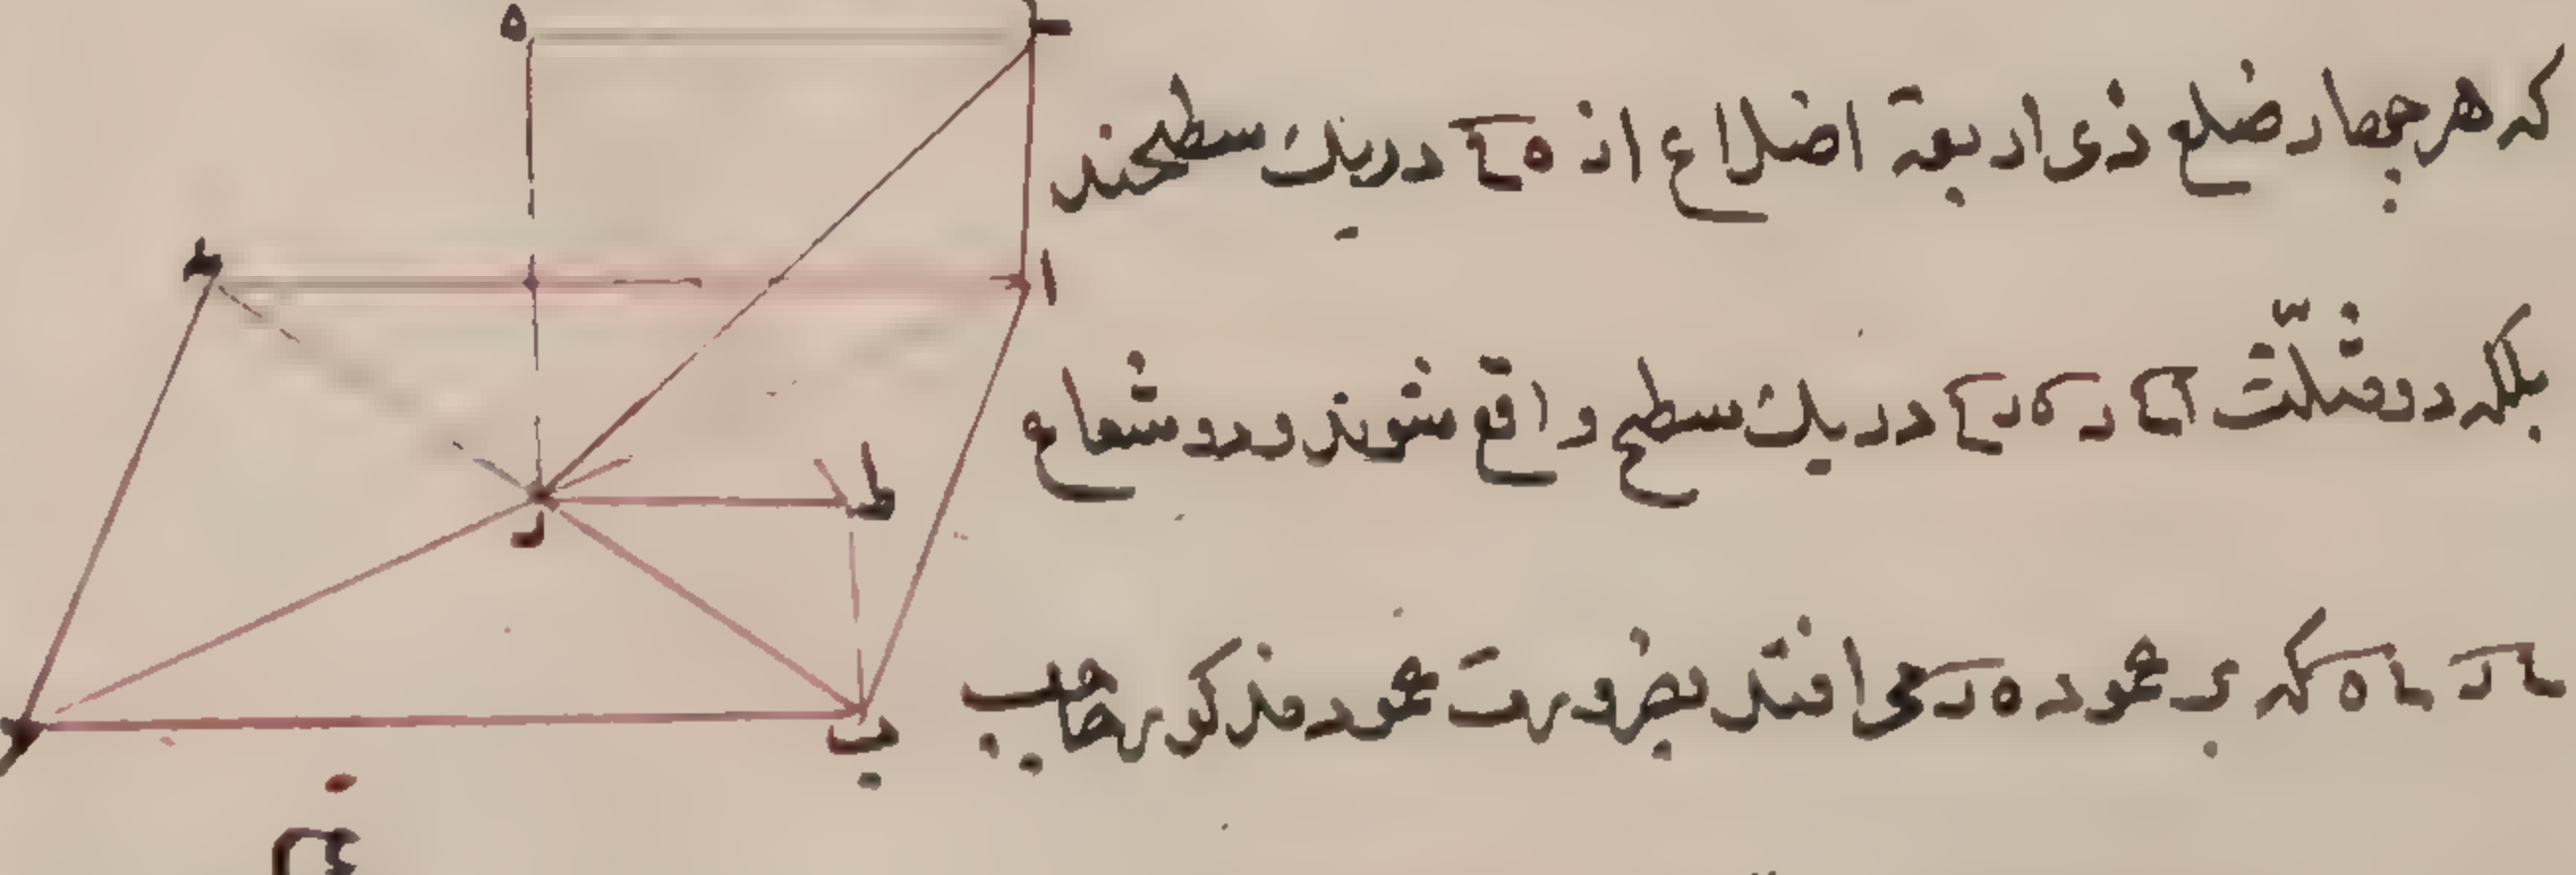 که هر چهار ضلع ذی اربعة اضلاع از در یک سطحند
بلکه دو مثلّث در یک سطح واقع شوند و دو شعاع
که بر عمود ه ر می افتد بضرورت عمود مذکور
ه
ا
ط
ر
ب